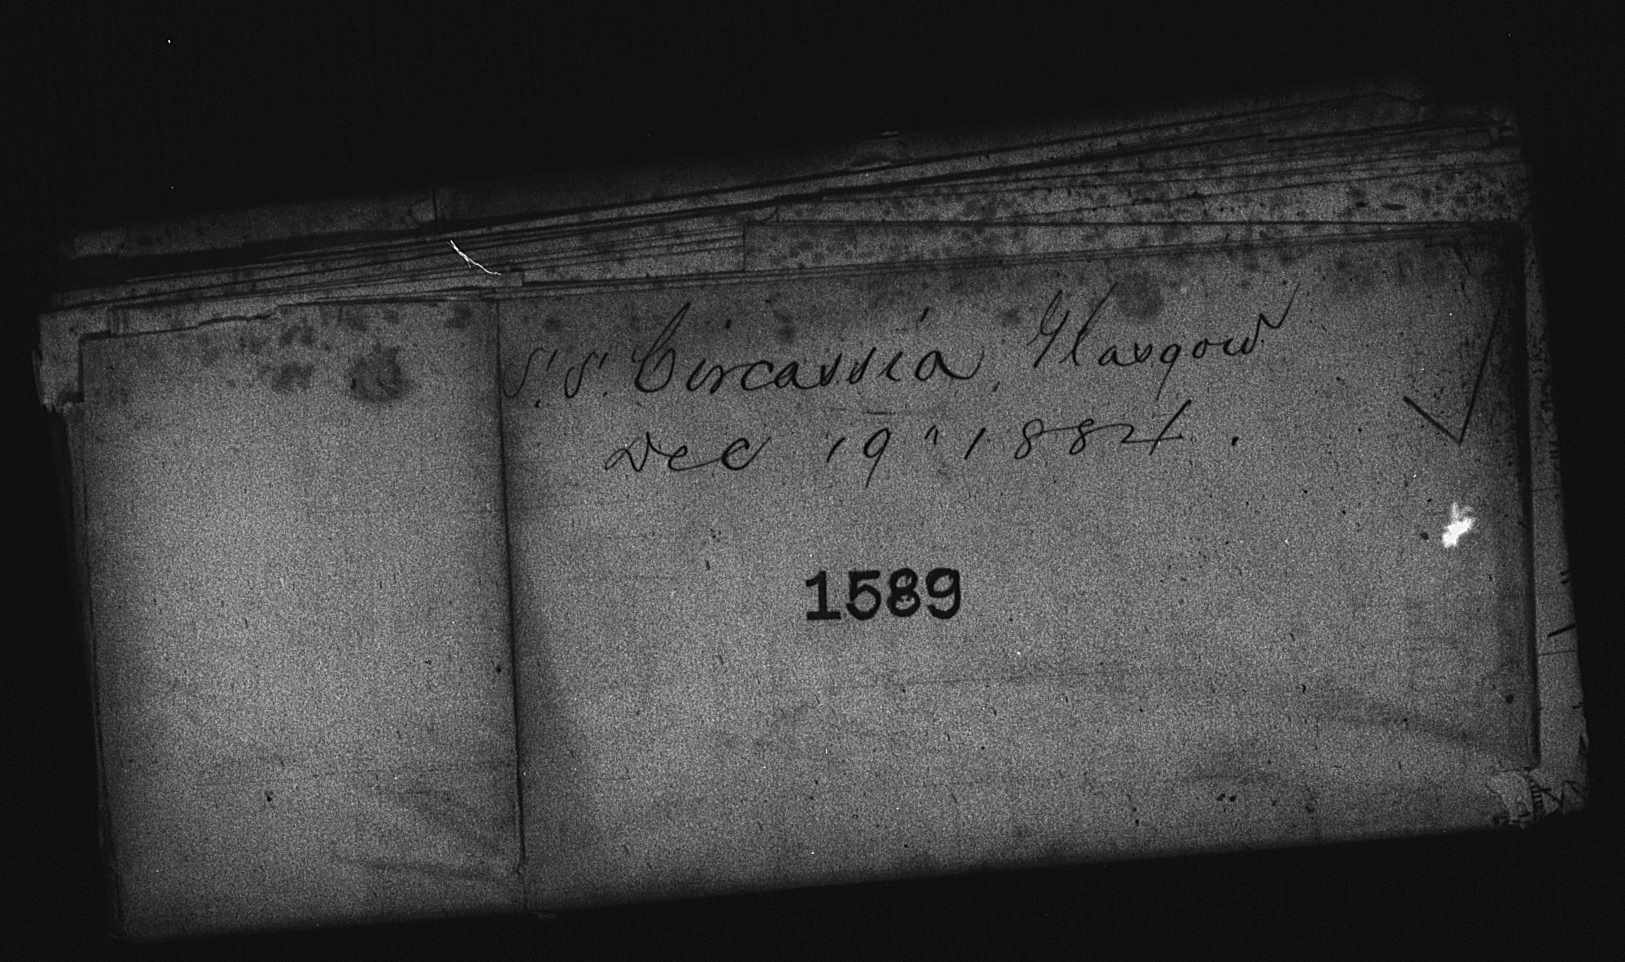 S.S. Circassia, Glasgow
Dec 19" 1884.
1589